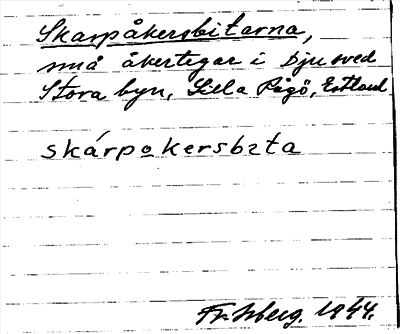 Skarpåkersbitarna,
små åkertegar i Djusved
Stora byn, Lilla Rågö, Estland
skárpokersbıta
Fr. Isberg. 1944.